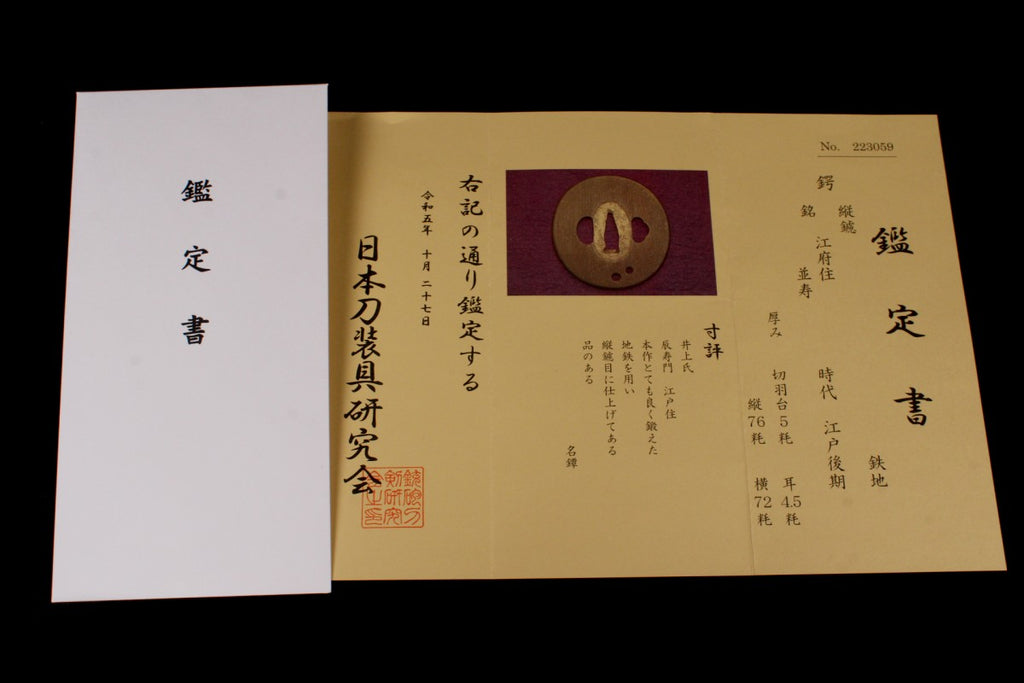 鑑定書
No. 223059
鑑定書
鉄地
縦鑢
鍔
銘 江府住 並寿
時代 江戸後期
厚み 切羽台5粍 耳4.5粍
縦76粍 横72粍
寸評
井上氏
辰寿門 江戸住
本作とても良く鍛えた
地鉄を用い
縦鑢目に仕上げてある
品のある
名鐔
右記の通り鑑定する
令和五年 十月 二十七日
日本刀装具研究会